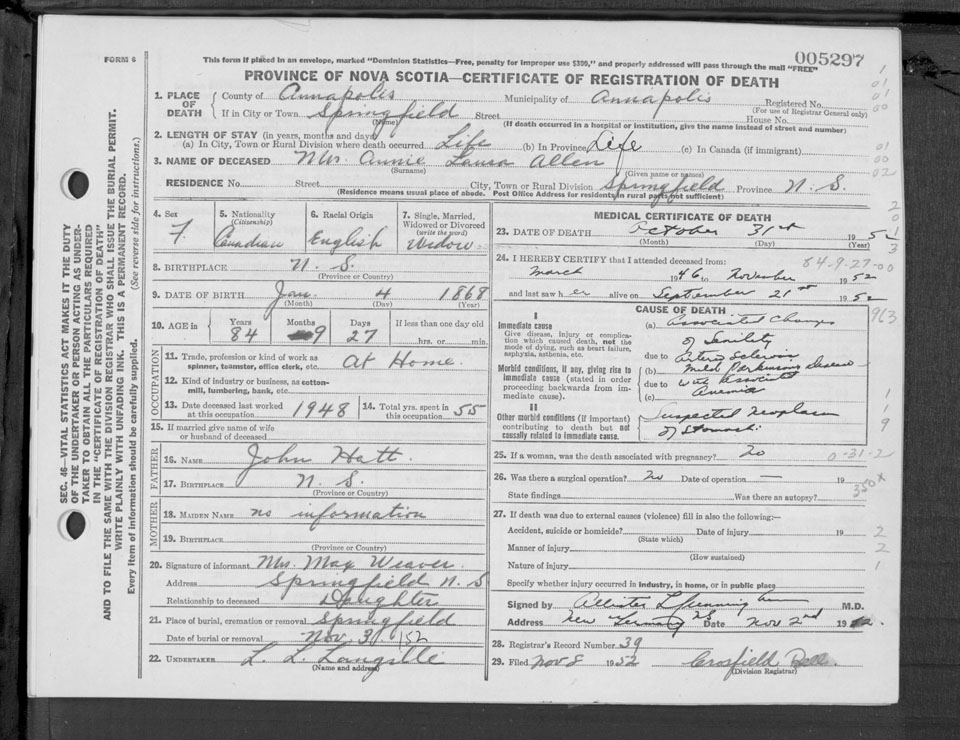 This form if placed in an envelope, marked "Dominion Statistics—Free, penalty for improper use $300," and properly addressed will pass through the mail "FREE"
005297
FORM 6
PROVINCE OF NOVA SCOTIA—CERTIFICATE OF REGISTRATION OF DEATH
SEC. 46—VITAL STATISTICS ACT MAKES IT THE DUTY
OF THE UNDERTAKER OR PERSON ACTING AS UNDER-
TAKER TO OBTAIN ALL THE PARTICULARS REQUIRED
IN THE "CERTIFICATE OF REGISTRATION OF DEATH"
AND TO FILE THE SAME WITH THE DIVISION REGISTRAR WHO SHALL ISSUE THE BURIAL PERMIT.
WRITE PLAINLY WITH UNFADING INK. THIS IS A PERMANENT RECORD.
Every item of information should be carefully supplied. (See reverse side for instructions.)
1. PLACE OF DEATH County of Annapolis Municipality of Annapolis Registered No.
(For use of Registrar General only)
If in City or Town Springfield Street House No.
(Name) (If death occurred in a hospital or institution, give the name instead of street and number)
2. LENGTH OF STAY (in years, months and days)
(a) In City, Town or Rural Division where death occurred Life (b) In Province Life (c) In Canada (if immigrant)
3. NAME OF DECEASED Mrs. Annie Laura Allen
(Surname) (Given name or names)
RESIDENCE No. Street City, Town or Rural Division Springfield Province N. S.
(Residence means usual place of abode. Post Office Address for residents in rural parts not sufficient)
4. Sex 5. Nationality 6. Racial Origin 7. Single, Married,
(Citizenship) Widowed or Divorced
(write the word)
F Canadian English Widow
8. BIRTHPLACE N. S.
(Province or Country)
9. DATE OF BIRTH Jan. 4 1868
(Month) (Day) (Year)
10. AGE in Years Months Days If less than one day old
84 9 27 hrs. or min.
OCCUPATION
11. Trade, profession or kind of work as
spinner, teamster, office clerk, etc. At Home.
12. Kind of industry or business, as cotton-
mill, lumbering, bank, etc.
13. Date deceased last worked
at this occupation 1948 14. Total yrs. spent in
this occupation 55
15. If married give name of wife
or husband of deceased
FATHER
16. NAME John Hatt.
17. BIRTHPLACE N. S.
(Province or Country)
MOTHER
18. MAIDEN NAME no information
19. BIRTHPLACE
(Province or Country)
20. Signature of informant Mrs. Max Weaver.
Address Springfield N. S
Relationship to deceased Daughter
21. Place of burial, cremation or removal Springfield
Date of burial or removal Nov. 3, 1952
22. UNDERTAKER L. L. Langille
(Name and address)
MEDICAL CERTIFICATE OF DEATH
23. DATE OF DEATH October 31st 1952
(Month) (Day) (Year)
84-9-27-00
24. I HEREBY CERTIFY that I attended deceased from:
March 1946 to November 1952
and last saw her alive on September 21st 1952
CAUSE OF DEATH
I
Immediate cause
Give disease, injury or complica-
tion which caused death, not the
mode of dying, such as heart failure,
asphyxia, asthenia, etc.
Morbid conditions, if any, giving rise to
immediate cause (stated in order
proceeding backwards from im-
mediate cause).
II
Other morbid conditions (if important)
contributing to death but not
causally related to immediate cause.
(a) Associated Changes
of Senility
due to Arterio Sclerosis
(b) Mild Parkinsons Disease
due to with Associated
(c) Anemia
Suspected Neoplasm
of Stomach.
25. If a woman, was the death associated with pregnancy? no
0-31-2
26. Was there a surgical operation? no Date of operation — 19
350 x
State findings Was there an autopsy?
27. If death was due to external causes (violence) fill in also the following:—
Accident, suicide or homicide? Date of injury 19
(State which)
Manner of injury
(How sustained)
Nature of injury
Specify whether injury occurred in industry, in home, or in public place
Signed by M.D.
Address New Germany NS Date Nov 2nd 1952.
28. Registrar's Record Number 39
29. Filed Nov 8 1952 Crosfield
(Division Registrar)